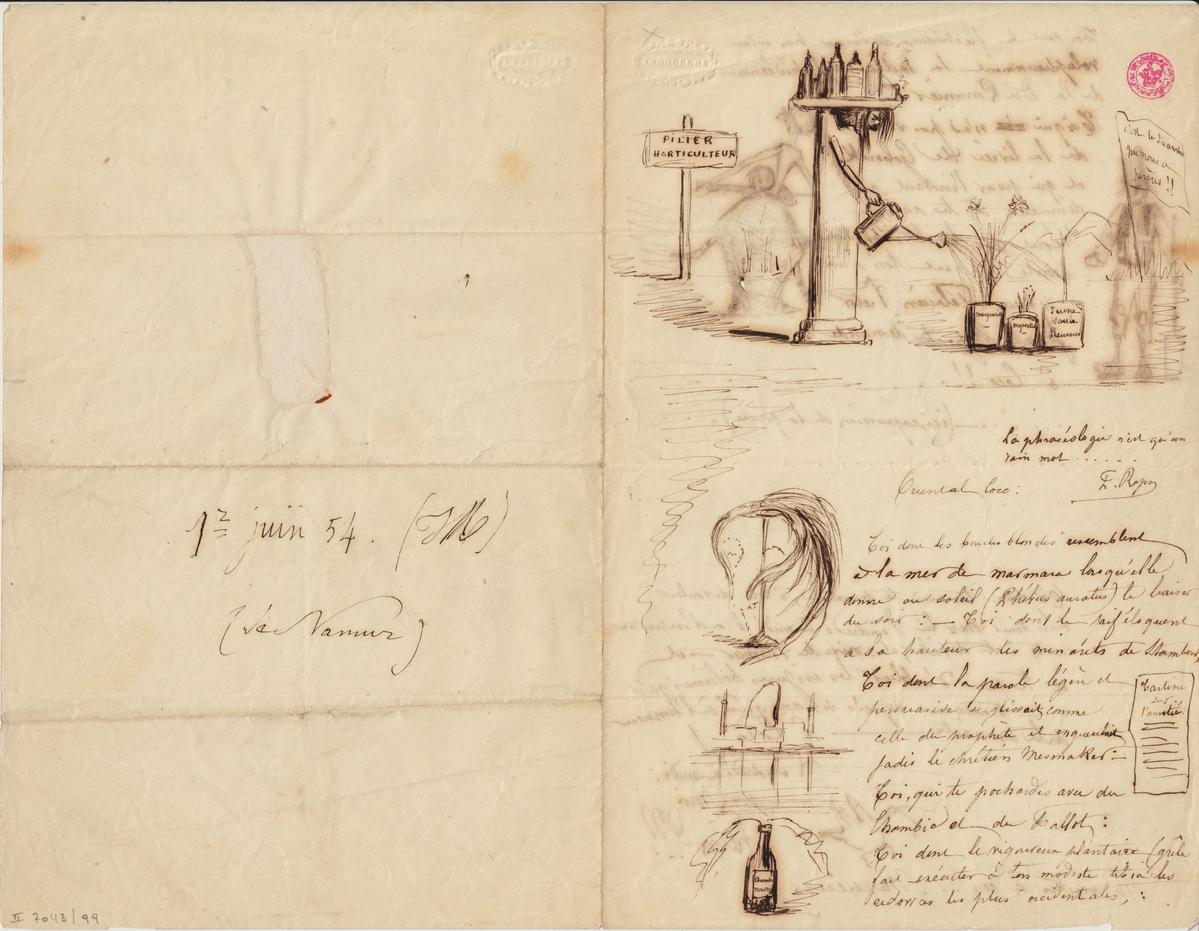 1er juin 54. (JM)
(de Namur)
II 7043/99
PILIER
HORTICULTEUR
c'est le
que nous a
perdus !!
Jeune
Saule
Pleureur
La phraséologie n'est qu'un
vain mot . . . . .
F. Rops
Oriental Coco :
Toi dont les boucles blondes ressemblent
à la mer de marmara lorsqu'elle
donne au soleil (Phébus auratus) le baiser
du soir : — Toi dont le est éloquent
à la hauteur des minarets de Stamboul,
Toi dont la parole légère et
persuasive se glissait comme
celle du prophète et engueulait
jadis le chrétien Mesmaker :—
Tartine
sur
l'amitié
Toi, qui te pochardes avec du
Chambic et du Kallot :
Toi dont le vigoureux plantaire (grêle
fait exécuter à ton modeste les
les plus occidentales, :